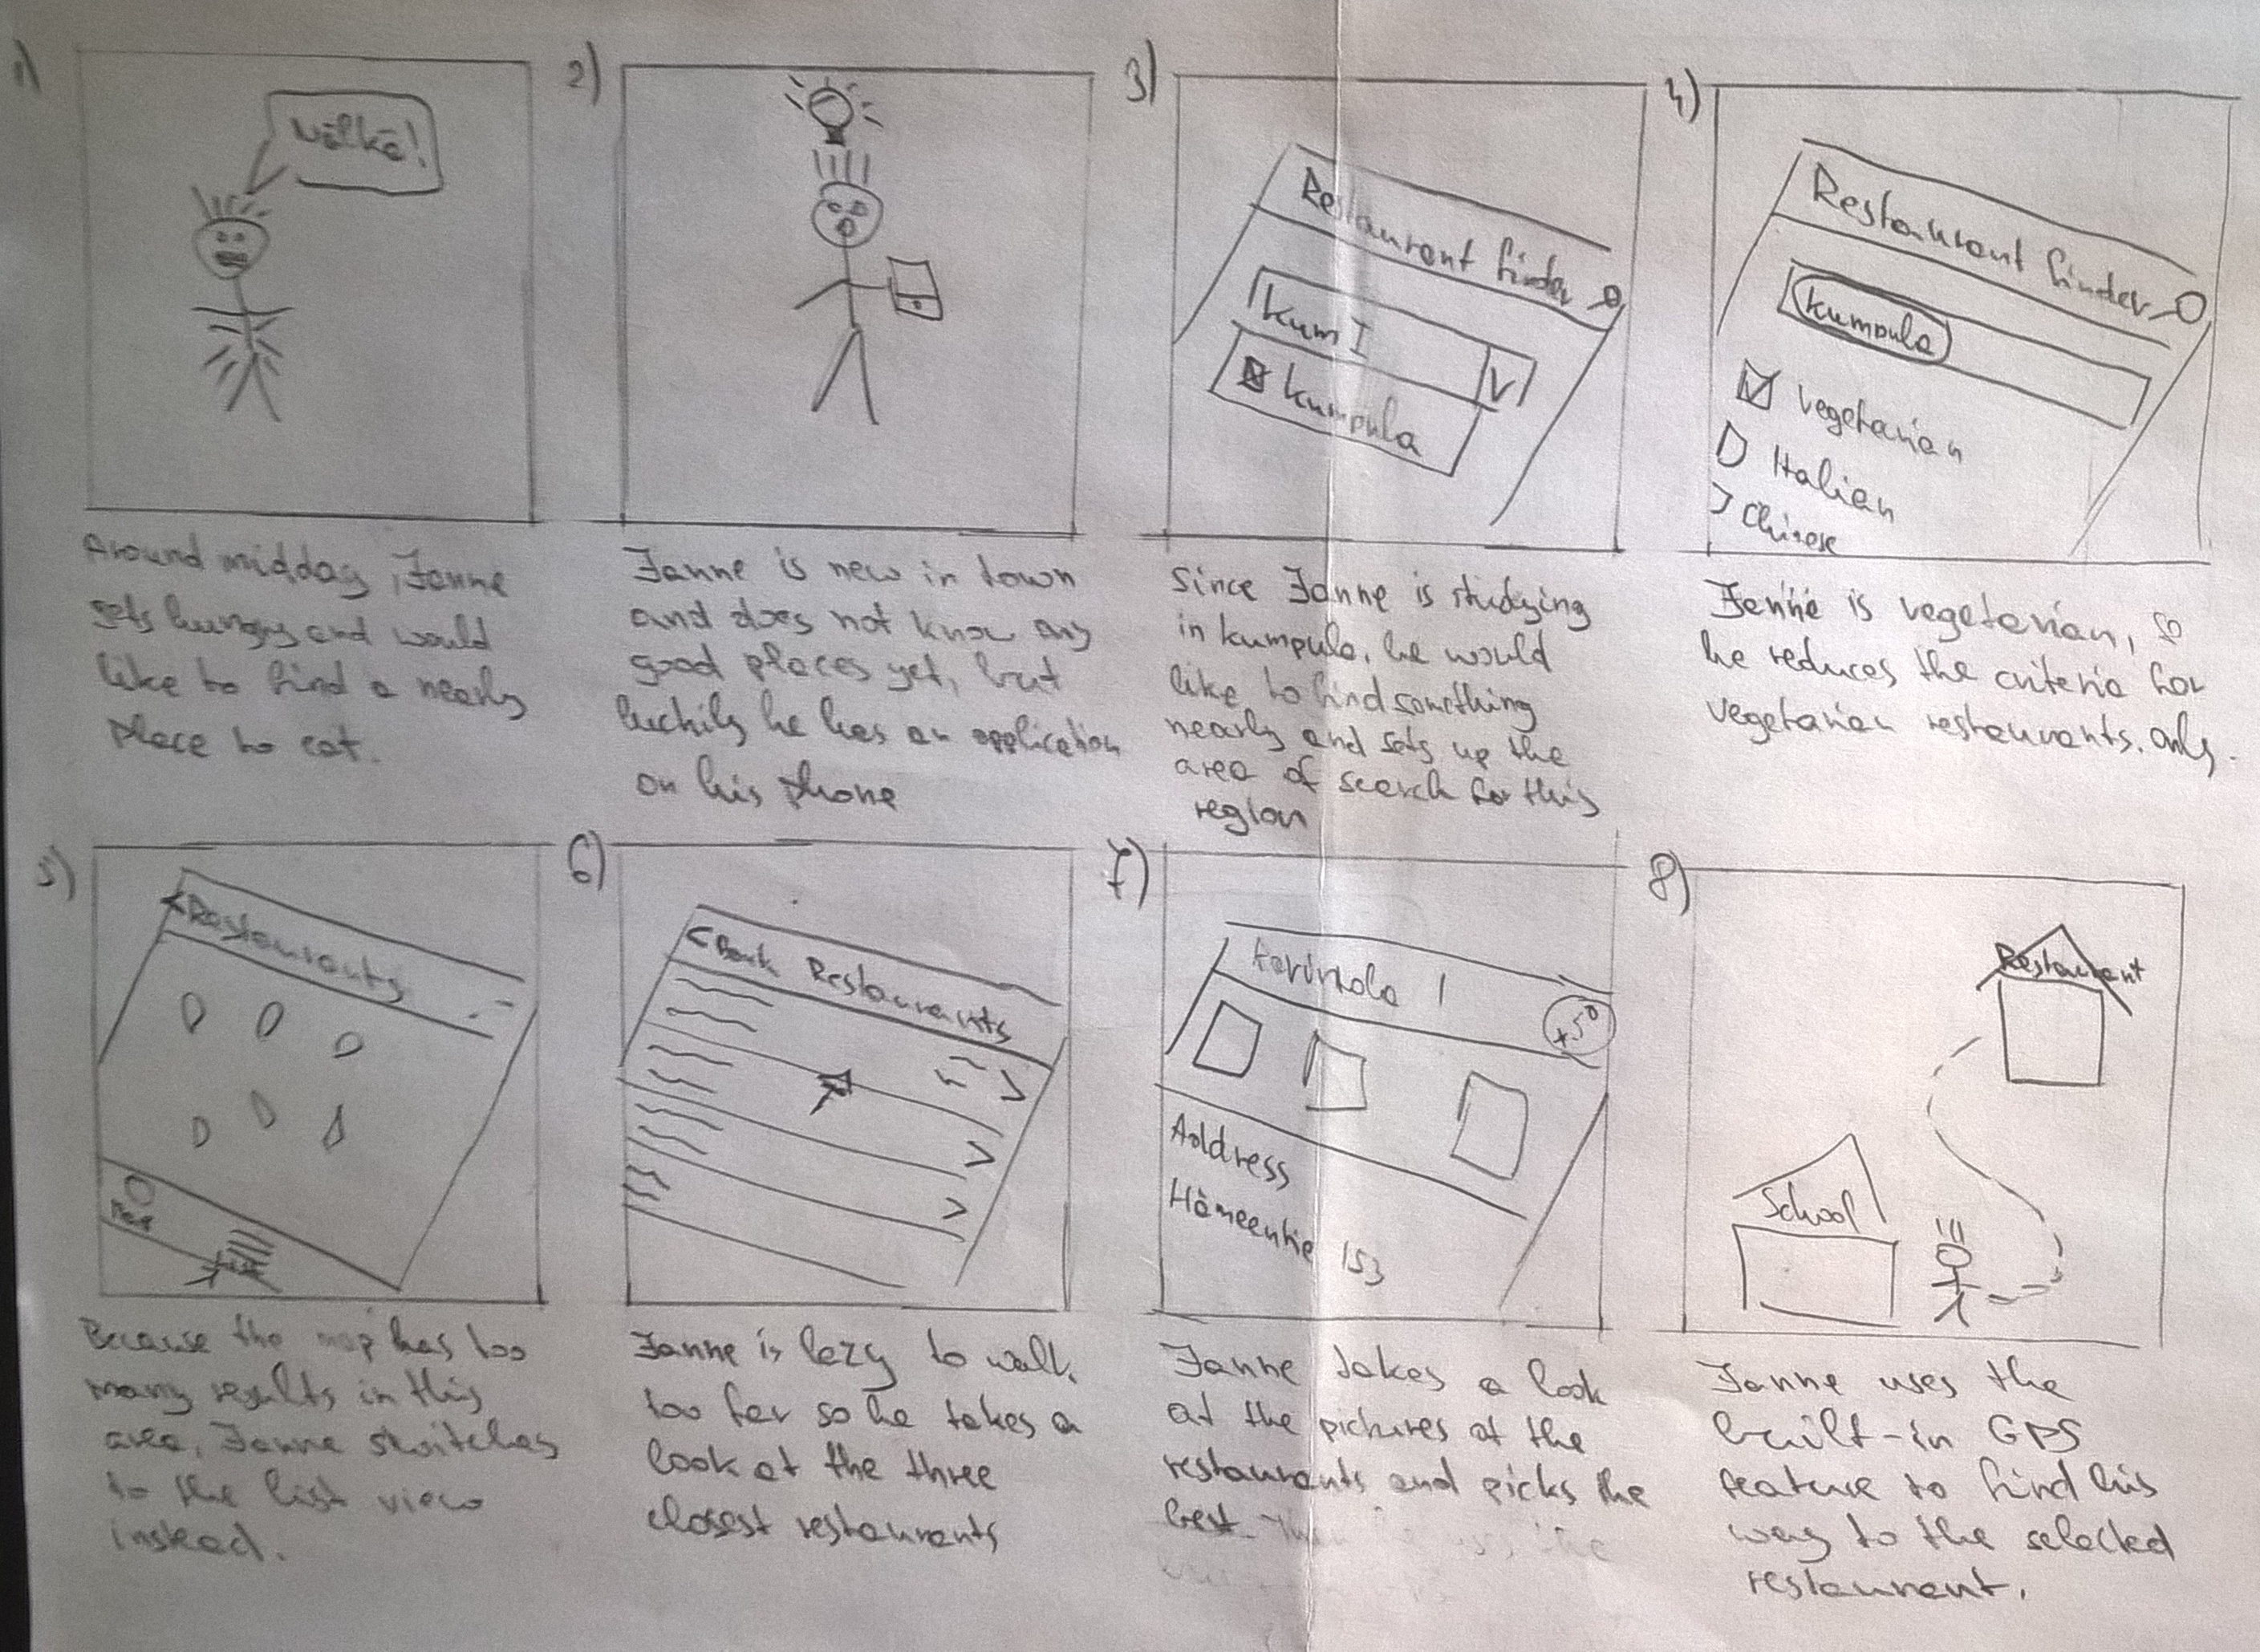 1)
Nälkä!
Around midday, Janne
gets hungry and would
like to find a nearby
place to eat.
2)
Janne is new in town
and does not know any
good places yet, but
luckily he has an application
on his phone
3)
Restaurant finder
Kum I
v
Kumpula
Since Janne is studying
in Kumpula, he would
like to find something
nearby and sets up the
area of search for this
region
4)
Restaurant finder
Kumpula
Vegetarian
Italian
Chinese
Janne is vegetarian, so
he reduces the criteria for
vegetarian restaurants. only.
5)
< Restaurants
Map
Because the map has too
many results in this
area, Janne switches
to the list view
instead.
6)
< Back Restaurants
>
>
>
Janne is lazy to walk
too far so he takes a
look at the three
closest restaurants
7)
1
+50
Address
Hämeentie 153
Janne takes a look
at the pictures of the
restaurants and picks the
best
8)
Restaurant
School
Janne uses the
built-in GPS
feature to find his
way to the selected
restaurant.